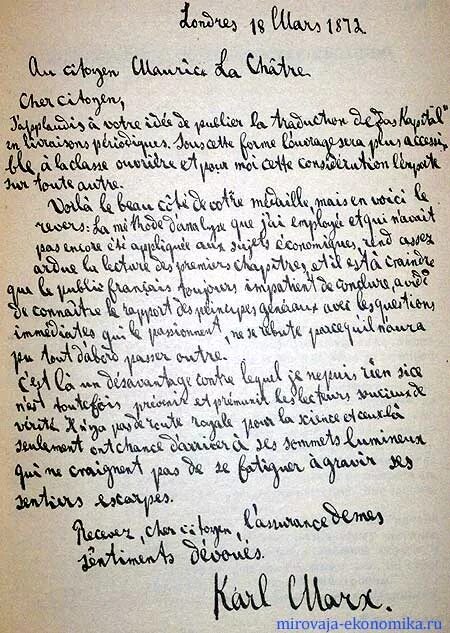 Londres 18 Mars 1872
Au citoyen Maurice La Châtre
Cher citoyen,
J'applaudis à votre idée de publier la traduction de „Das Kapital"
en livraisons périodiques. Sous cette forme l'ouvrage sera plus accessi-
ble à la classe ouvrière et pour moi cette considération l'emporte
sur toute autre.
Voilà le beau côté de votre médaille, mais en voici le
revers: La méthode d'analyse que j'ai employée et qui n'avait
pas encore été appliquée aux sujets économiques, rend assez
ardue la lecture des premiers chapitres, et il est à craindre
que le public français toujours impatient de conclure, avide
de connaître le rapport des principes généraux avec les questions
immédiates qui le passionnent, ne se rebute parce qu'il n'aura
pu tout d'abord passer outre.
C'est là un désavantage contre lequel je ne puis rien si ce
n'est toutefois prévenir et prémunir les lecteurs soucieux de
vérité. Il n'y a pas de route royale pour la science et ceux là
seulement ont chance d'arriver à ses sommets lumineux
qui ne craignent pas de se fatiguer à gravir ses
sentiers escarpés.
Recevez, cher citoyen, l'assurance de mes
sentiments dévoués.
Karl Marx.
mirovaja-ekonomika.ru